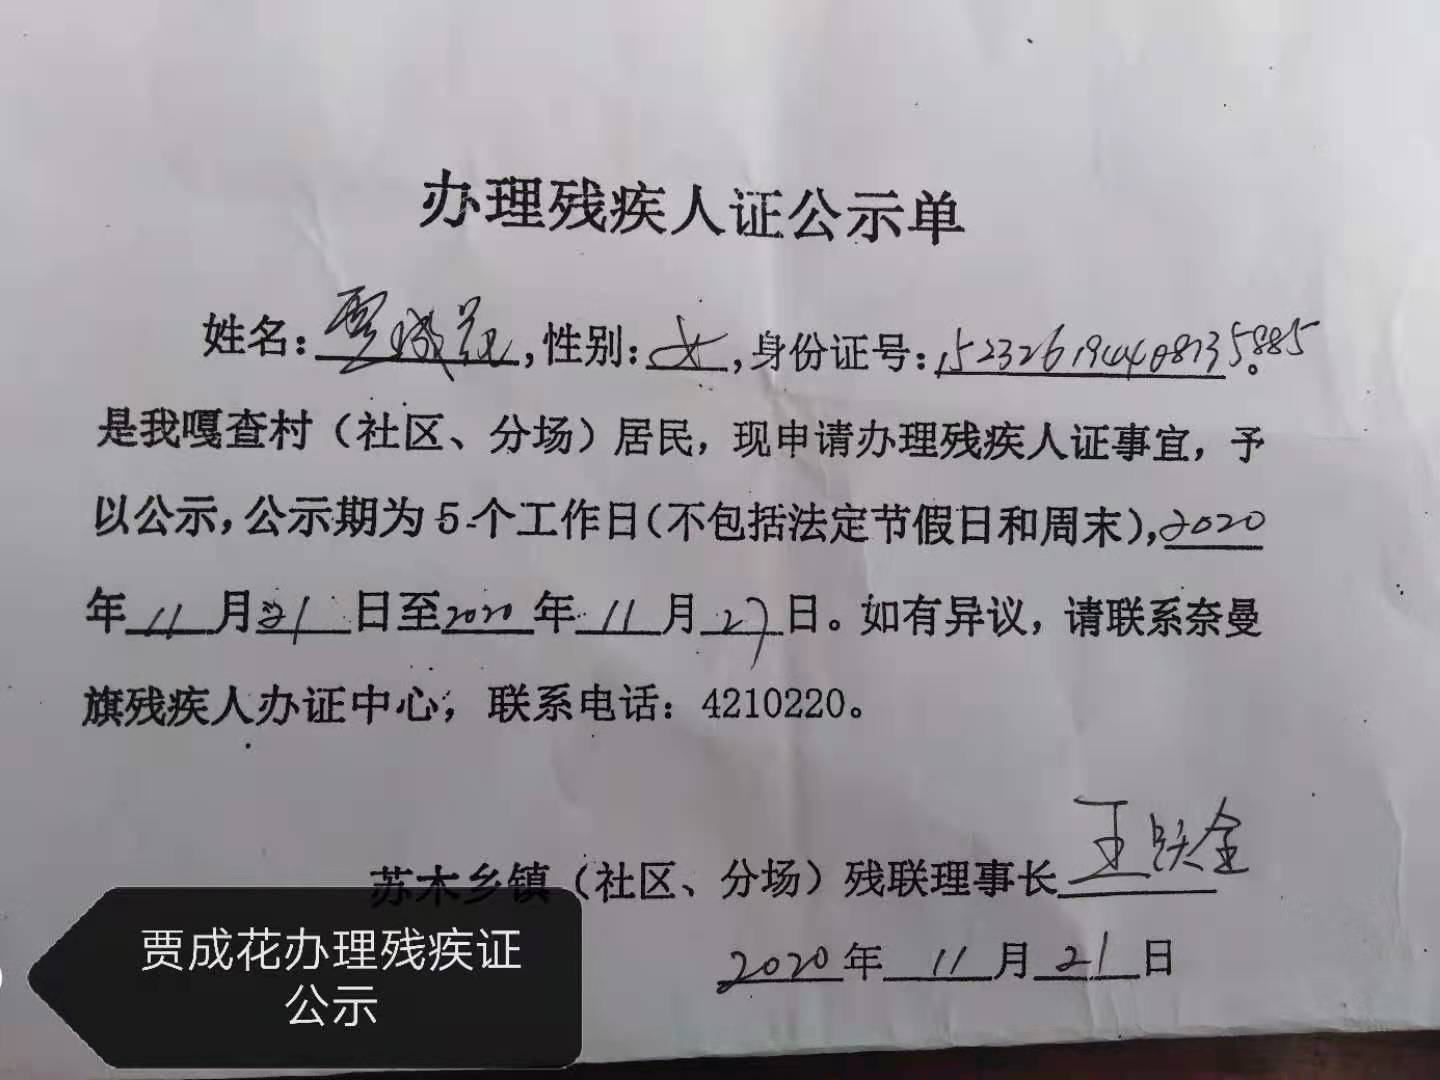 办理残疾人证公示单
姓名：贾成花，性别：女，身份证号：152326194408135885。
是我嘎查村（社区、分场）居民，现申请办理残疾人证事宜，予
以公示，公示期为5个工作日（不包括法定节假日和周末），2020
年11月21日至2020年11月27日。如有异议，请联系奈曼
旗残疾人办证中心，联系电话：4210220。
苏木乡镇（社区、分场）残联理事长王跃全
2020年11月21日
贾成花办理残疾证
公示